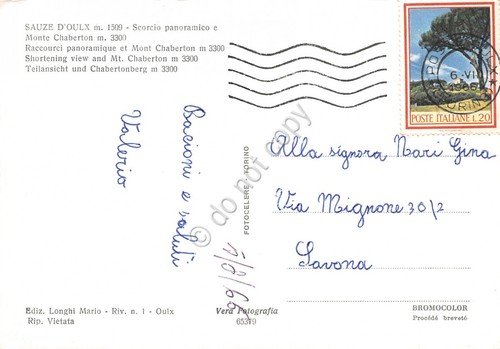 SAUZE D'OULX m. 1509 - Scorcio panoramico e
Monte Chaberton m. 3300
Raccourci panoramique et Mont Chaberton m 3300
Shortening view and Mt. Chaberton m 3300
Teilansicht und Chabertonberg m 3300
POSTE ITALIANE L.20
6-VII
Bacioni e saluti
Valerio
FOTOCELERE - TORINO
do not copy
Alla signora Nari Gina
Via Mignone 30/2
Savona
Ediz. Longhi Mario - Riv. n. 1 - Oulx
Rip. Vietata
Vera Fotografia
65379
BROMOCOLOR
Procédé breveté